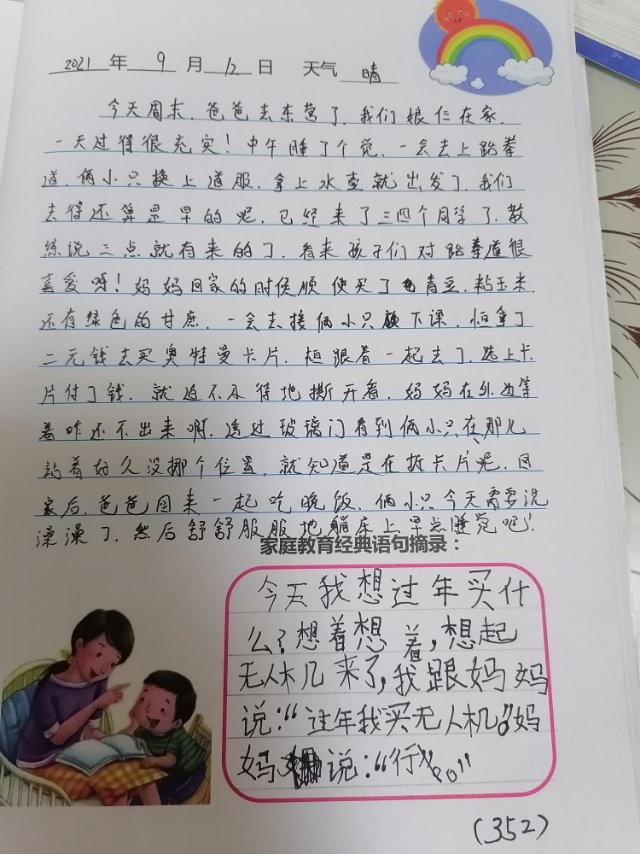 2021 年 9 月 12 日 天气 晴
今天周末,爸爸去东营了,我们娘仨在家,
一天过得很充实!中午睡了个觉,一会去上跆拳
道,俩小只换上道服,拿上水壶就出发了,我们
去得还算是早的呢,已经来了三四个同学了,教
练说三点就有来的了,看来孩子们对跆拳道很
喜爱呀!妈妈回家的时候顺便买了青豆,粘玉米,
还有绿色的甘蔗,一会去接俩小只下课,怕拿了
二元钱去买奥特曼卡片,想跟着一起去了,选上卡
片付了钱,就迫不及待地撕开看,妈妈在外边等
着咋还不出来啊,透过玻璃门看到俩小只在那儿
站着好久没挪个位置,就知道是在拆卡片呢,回
家后,爸爸回来一起吃晚饭,俩小只今天需要洗
澡澡了,然后舒舒服服地躺床上早点睡觉吧!
家庭教育经典语句摘录:
今天我想过年买什
么?想着想着,想起
无人机来了,我跟妈妈
说:“过年我买无人机。”妈
妈说:“行。”
(352)